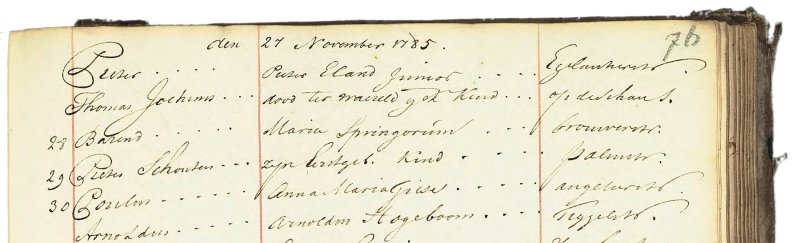 76
den 27 November 1785.
Pieter . . . . Pieter Eland Junior . . . . Egelantierstr.
Thomas Jochems . . . dood ter waereld geb. Kind . . . op de Schans.
28 Barend . . . . Maria Springorum . . . brouwerstr.
29 Pieter Schouten . . . zyn Eerstgeb. Kind . . . . palmstr.
30 . . . . . Anna Maria Giese . . . . . angelierstr.
Arnoldus . . . . . Arnoldus Hogeboom . . . . Tiggelstr.